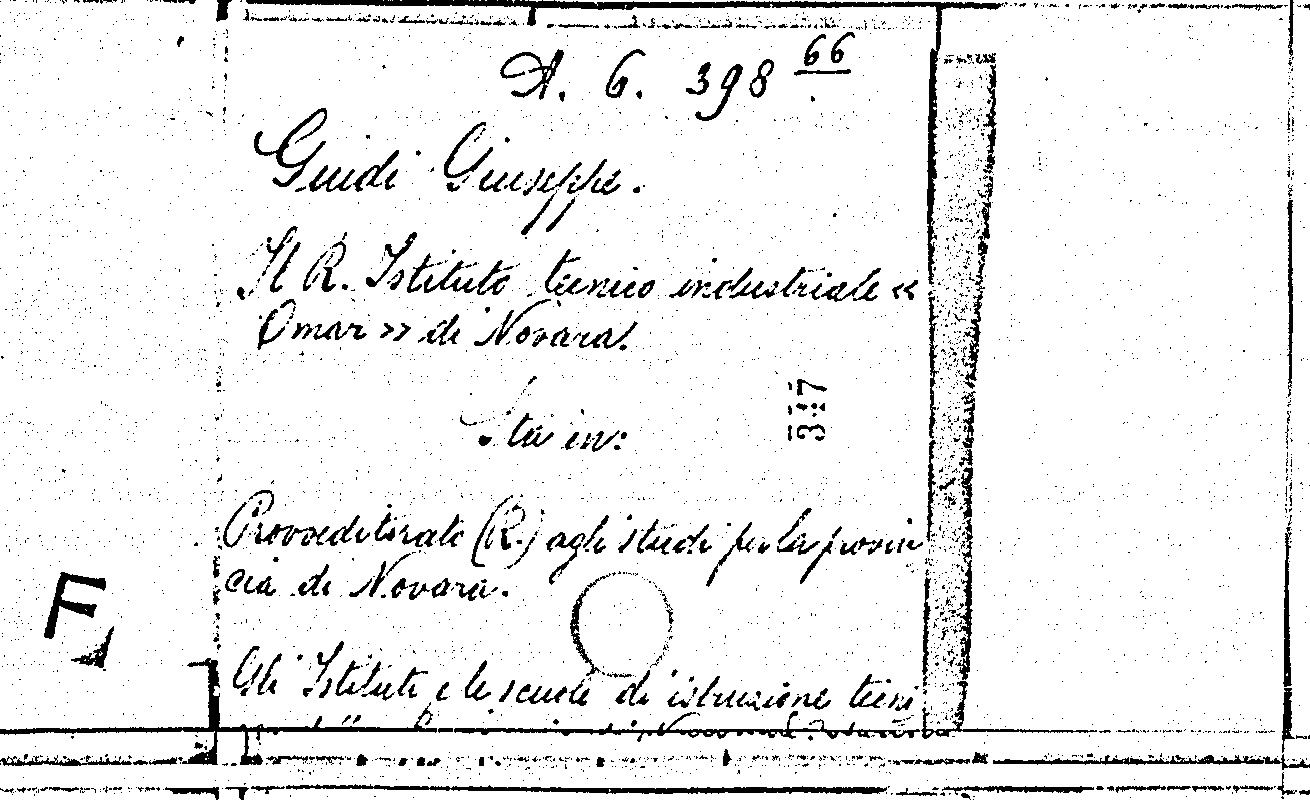 A. 6. 398 66
Guidi Giuseppe.
Il R. Istituto tecnico industriale «
Omar » di Novara.
Sta in:
317
Provveditorato (R.) agli studi per la provin
cia di Novara.
F
Gli Istituti e le scuole di istruzione tecni